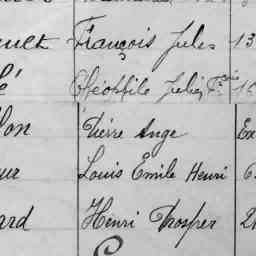 François Jules 13
lé Théophile Jules F. 16
lon Pierre Ange Ex
ur Louis Emile Henri 6
ard Henri Prosper 2